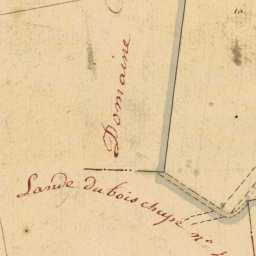 10.
Domaine
Lande du bois chupé n°